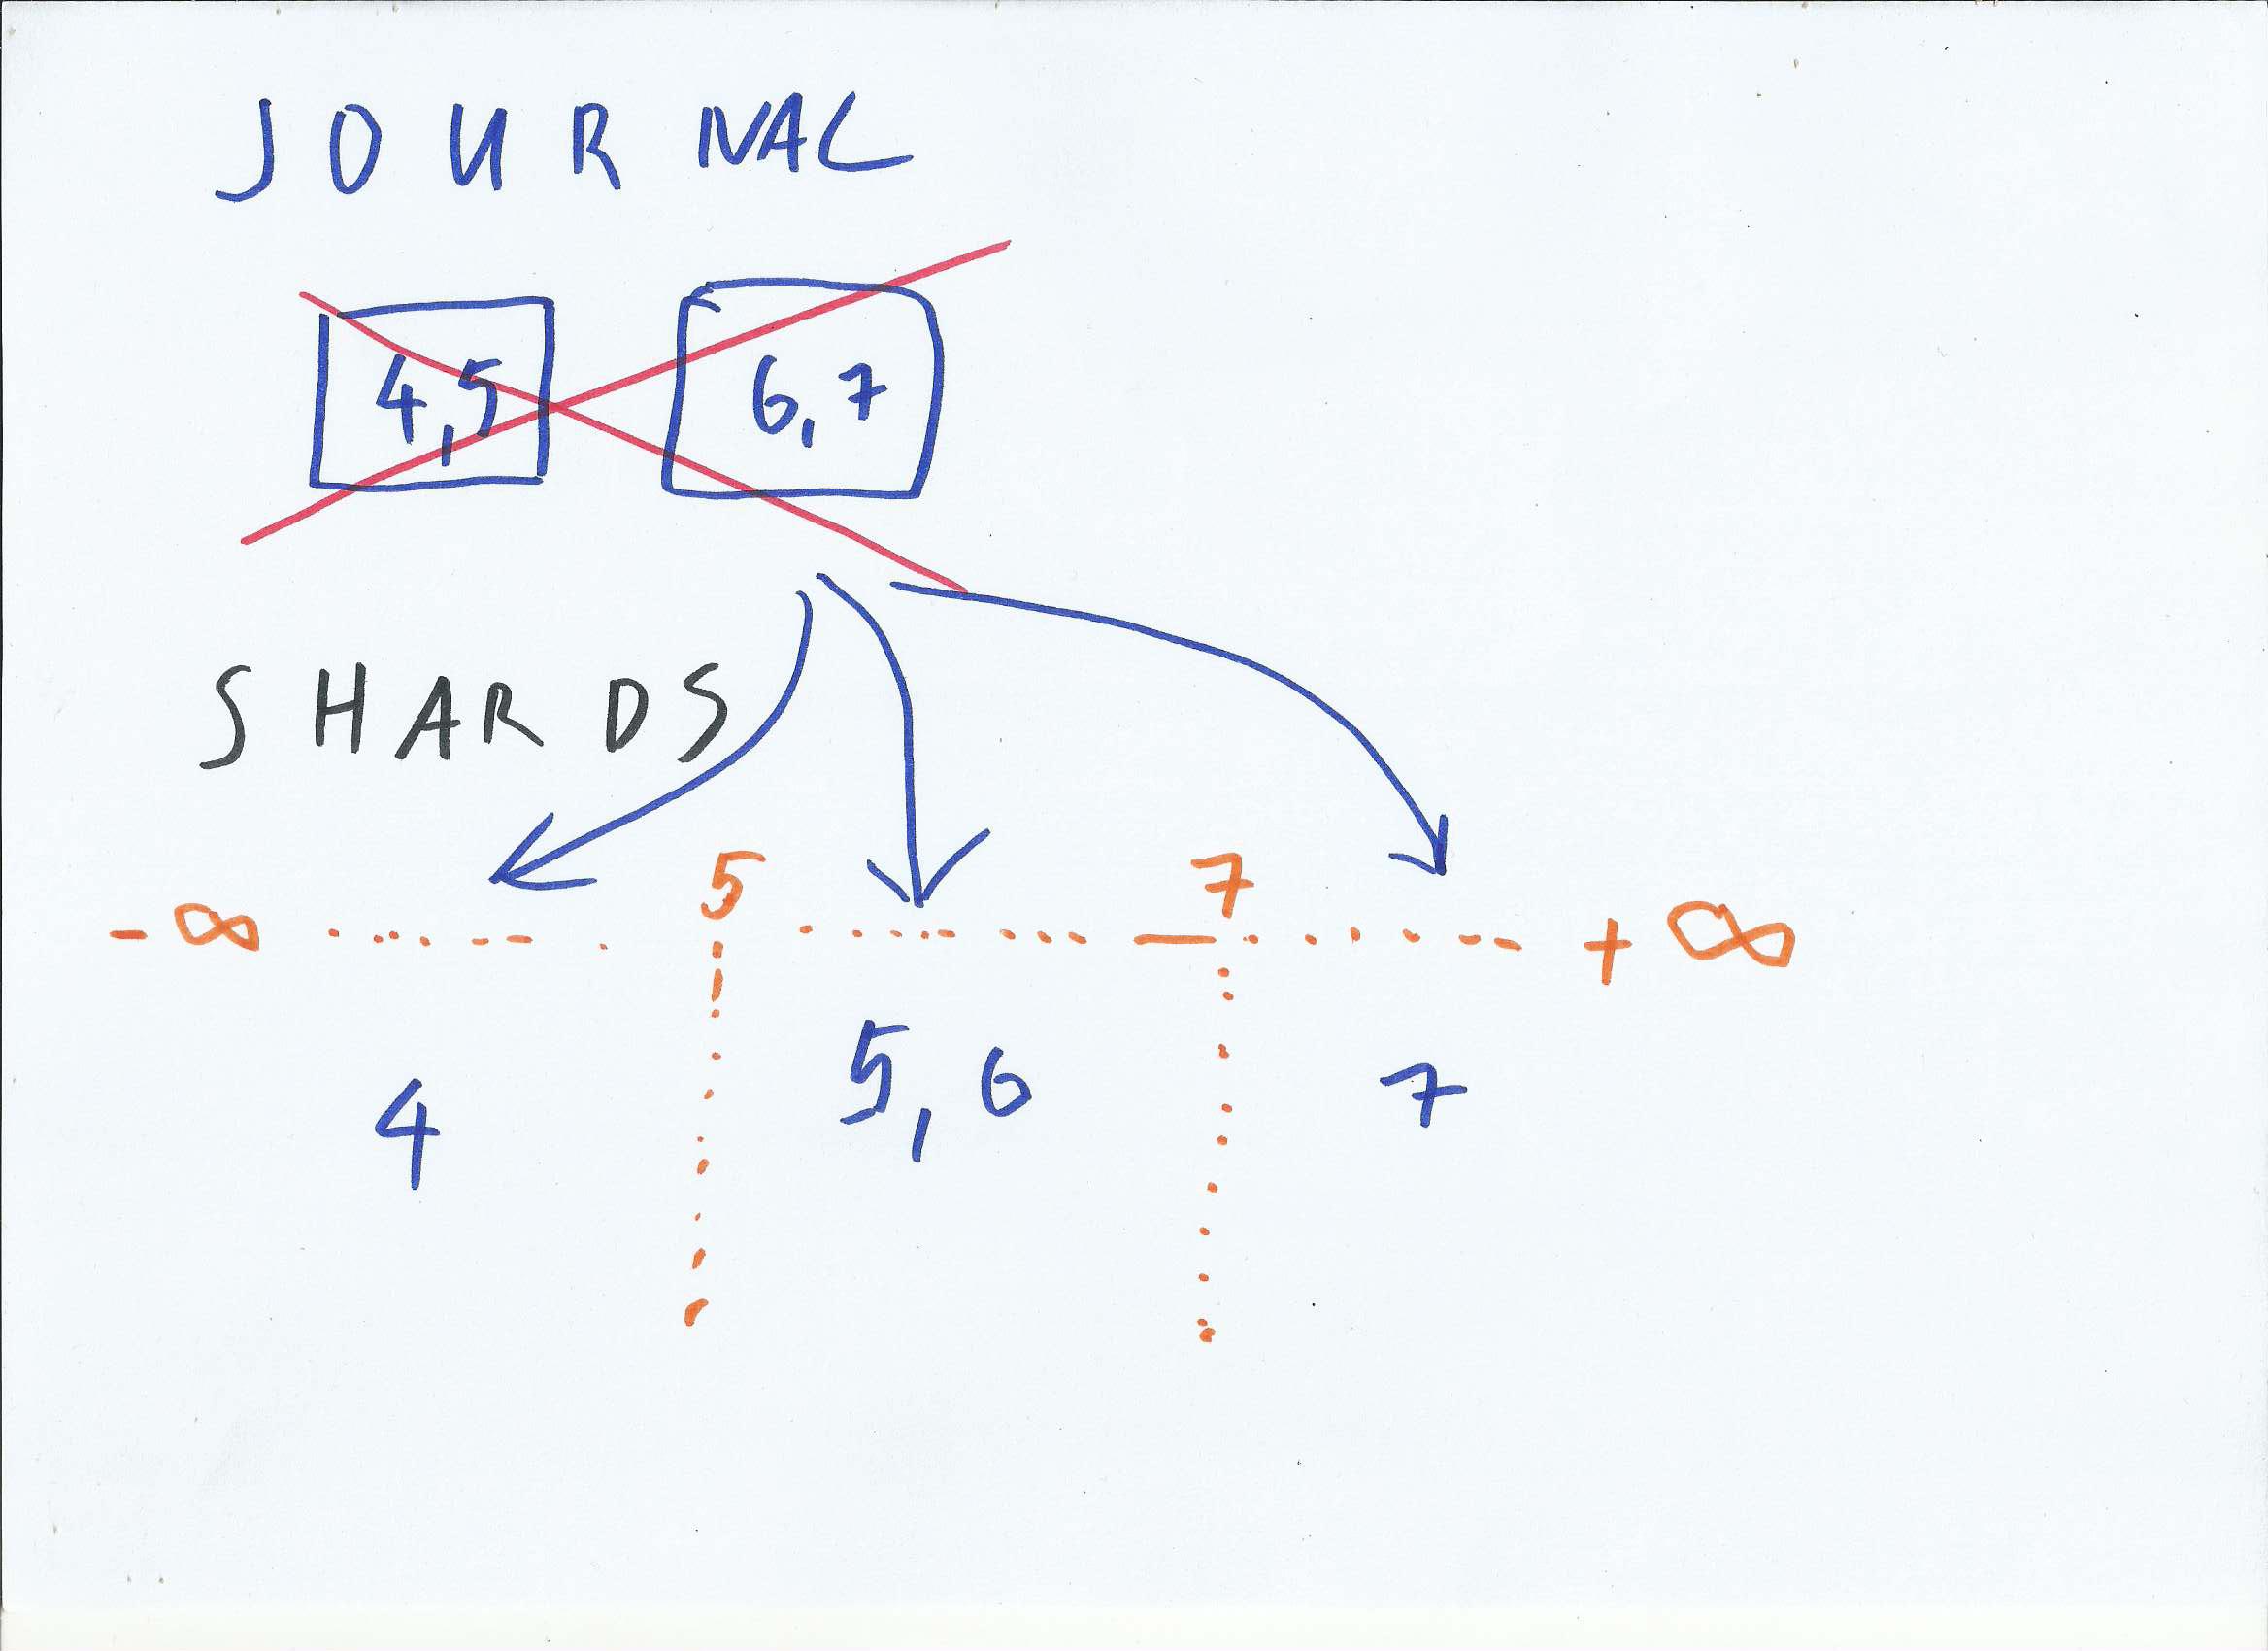 JOURNAL
4,5 6,7
SHARDS
5 7
-∞ +∞
4 5,6 7